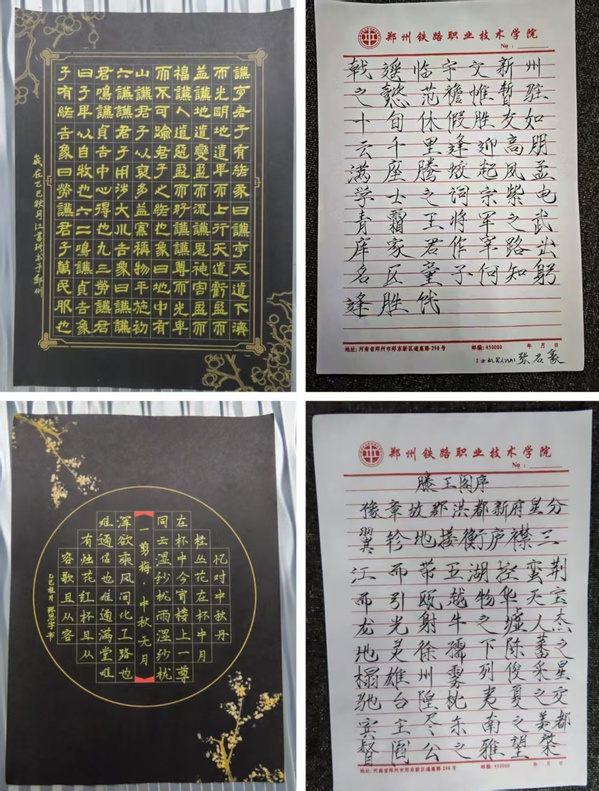 謙亨君子有終彖曰謙亨天道下濟
而光明地道卑而上行天道虧盈而
益謙地道變盈而流謙鬼神害盈而
福謙人道惡盈而好謙謙尊而光卑
而不可踰君子之終也象曰地中有
山謙君子以裒多益寡稱物平施初
六謙謙君子用涉大川吉象曰謙謙
君鳴謙貞吉中心得也九三勞謙君
曰子卑以自牧也六二鳴謙貞吉象
子有終吉象曰勞謙君子萬民服也
歲在乙巳秋月江書棋书于鄭州
郑州铁路职业技术学院
No:
戟遥临宇文新州
之懿范襜帷暂驻
十旬休假胜友如
云千里逢迎高朋
满座腾蛟起凤孟
学士之词宗紫电
青霜王将军之武
库家君作宰路出
名区童子何知躬
逢胜饯
地址:河南省郑州市郑东新区通惠路298号 邮编:450000 年 月 日
张石豪
忆对中秋丹
桂丛花在杯中月
在杯中今宵楼上一尊
同云湿纱窗雨湿纱窗
一剪梅·中秋无月
浑欲乘风问化工路也
难通信也难通满堂唯
有烛花红杯且从
容歌且从容
乙巳桂月
郑州铁路职业技术学院
No:
滕王阁序
豫章故郡洪都新府星分
翼轸地接衡庐襟三
江而带五湖控蛮荆
而引瓯越物华天宝
龙光射牛之墟人杰
地灵徐孺下陈蕃之
榻雄州雾列俊采星
驰台隍枕夷夏之交
宾主尽东南之美都
督阎公之雅望棨
地址:河南省郑州市郑东新区通惠路298号 邮编:450000 年 月 日